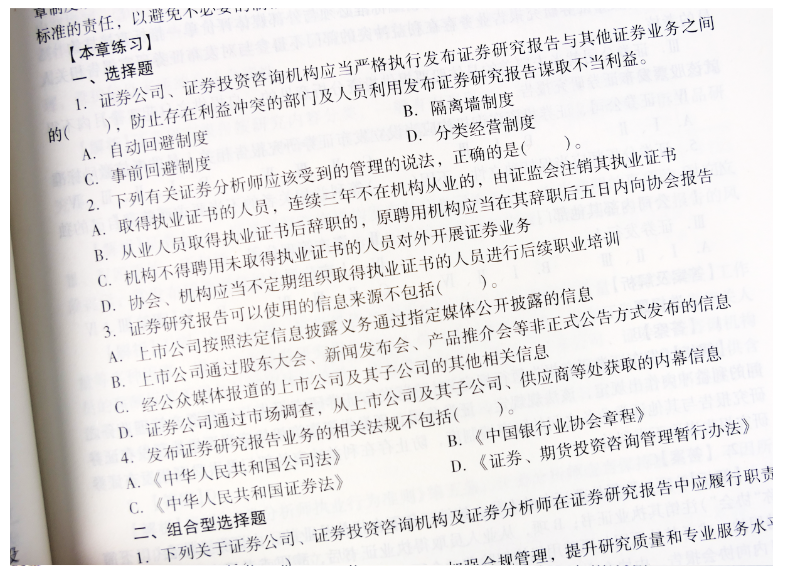 标准的责任，以避免不必要的
【本章练习】
一、选择题
1. 证券公司、证券投资咨询机构应当严格执行发布证券研究报告与其他证券业务之间
的(　　)，防止存在利益冲突的部门及人员利用发布证券研究报告谋取不当利益。
A. 自动回避制度 B. 隔离墙制度
C. 事前回避制度 D. 分类经营制度
2. 下列有关证券分析师应该受到的管理的说法，正确的是(　　)。
A. 取得执业证书的人员，连续三年不在机构从业的，由证监会注销其执业证书
B. 从业人员取得执业证书后辞职的，原聘用机构应当在其辞职后五日内向协会报告
C. 机构不得聘用未取得执业证书的人员对外开展证券业务
D. 协会、机构应当不定期组织取得执业证书的人员进行后续职业培训
3. 证券研究报告可以使用的信息来源不包括(　　)。
A. 上市公司按照法定信息披露义务通过指定媒体公开披露的信息
B. 上市公司通过股东大会、新闻发布会、产品推介会等非正式公告方式发布的信息
C. 经公众媒体报道的上市公司及其子公司的其他相关信息
D. 证券公司通过市场调查，从上市公司及其子公司、供应商等处获取的内幕信息
4. 发布证券研究报告业务的相关法规不包括(　　)。
A.《中华人民共和国公司法》 B.《中国银行业协会章程》
C.《中华人民共和国证券法》 D.《证券、期货投资咨询管理暂行办法》
二、组合型选择题
1. 下列关于证券公司、证券投资咨询机构及证券分析师在证券研究报告中应履行职责
加强合规管理，提升研究质量和专业服务水平